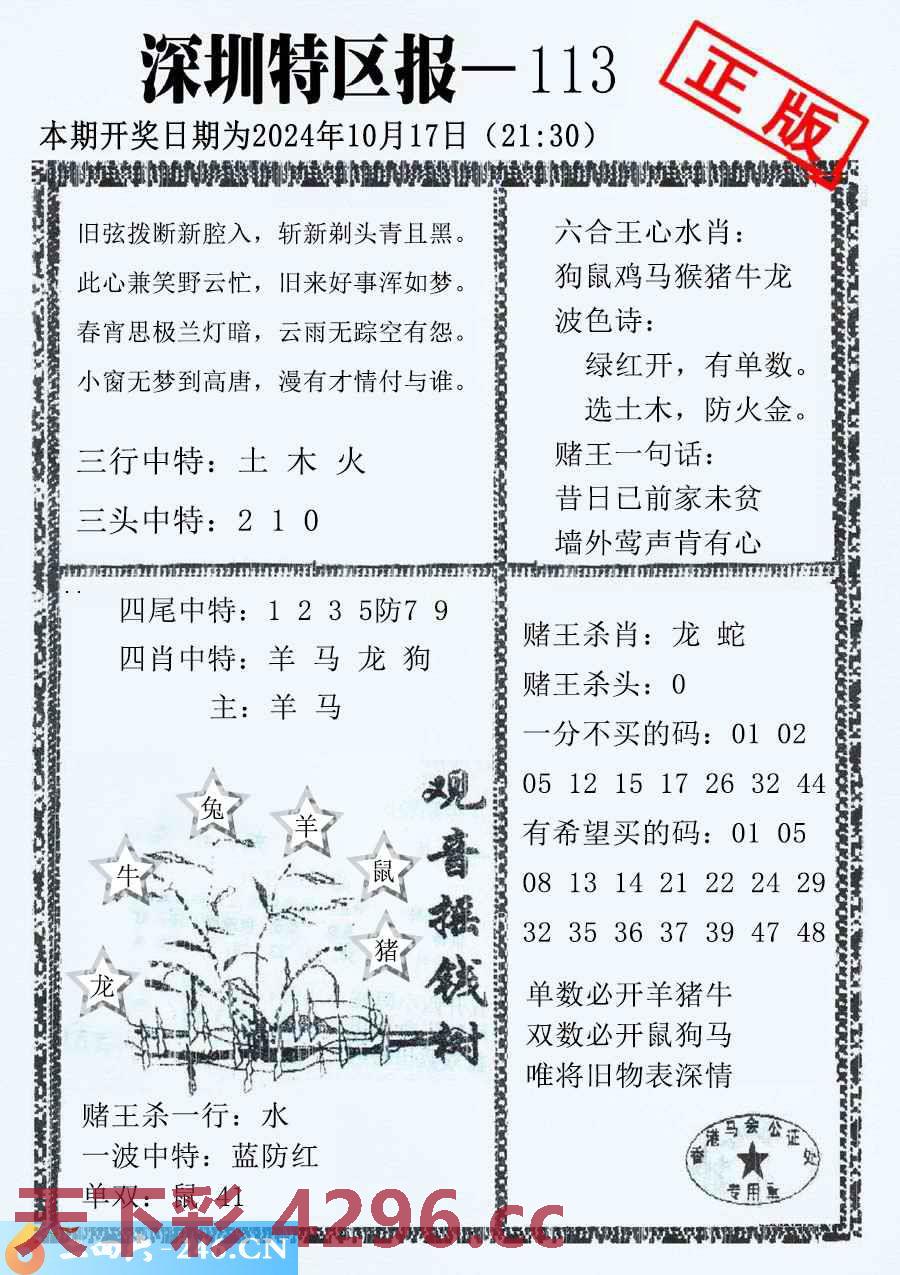 深圳特区报—113
正版
本期开奖日期为2024年10月17日（21:30）
旧弦拨断新腔入，斩新剃头青且黑。
此心兼笑野云忙，旧来好事浑如梦。
春宵思极兰灯暗，云雨无踪空有怨。
小窗无梦到高唐，漫有才情付与谁。
三行中特：土 木 火
三头中特：2 1 0
六合王心水肖：
狗鼠鸡马猴猪牛龙
波色诗：
绿红开，有单数。
选土木，防火金。
赌王一句话：
昔日已前家未贫
墙外莺声肯有心
四尾中特：1 2 3 5防7 9
四肖中特：羊 马 龙 狗
主：羊 马
兔
羊
牛
鼠
猪
龙
观音摇钱树
赌王杀一行：水
一波中特：蓝防红
单双：鼠 41
赌王杀肖：龙 蛇
赌王杀头：0
一分不买的码：01 02
05 12 15 17 26 32 44
有希望买的码：01 05
08 13 14 21 22 24 29
32 35 36 37 39 47 48
单数必开羊猪牛
双数必开鼠狗马
唯将旧物表深情
香港马会公证处
专用章
天下彩 4296.cc
246.CN